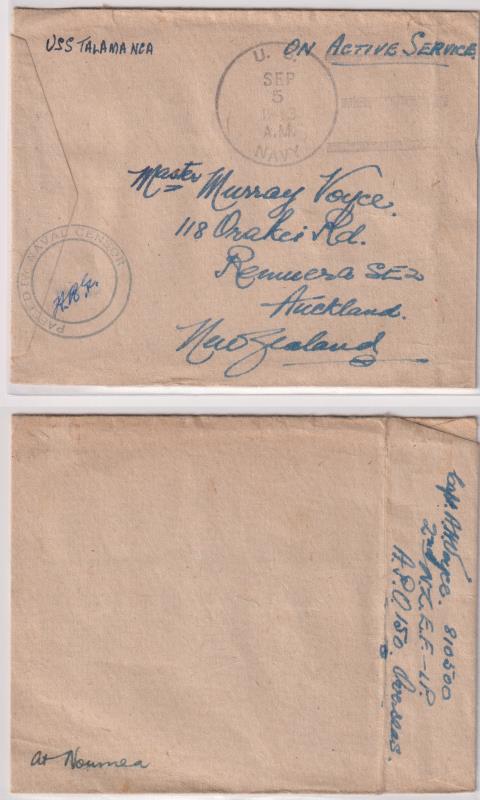 USS TALAMANCA
ON ACTIVE SERVICE
U. S.
SEP
5
A.M.
NAVY
Master Murray Voyce.
118 Orakei Rd.
Remuera SE2
Auckland.
New Zealand
PASSED BY NAVAL CENSOR
Capt. Voyce. 810500
2nd N.Z.E.F.-I.P.
A.P.O 150. Overseas.
At Noumea